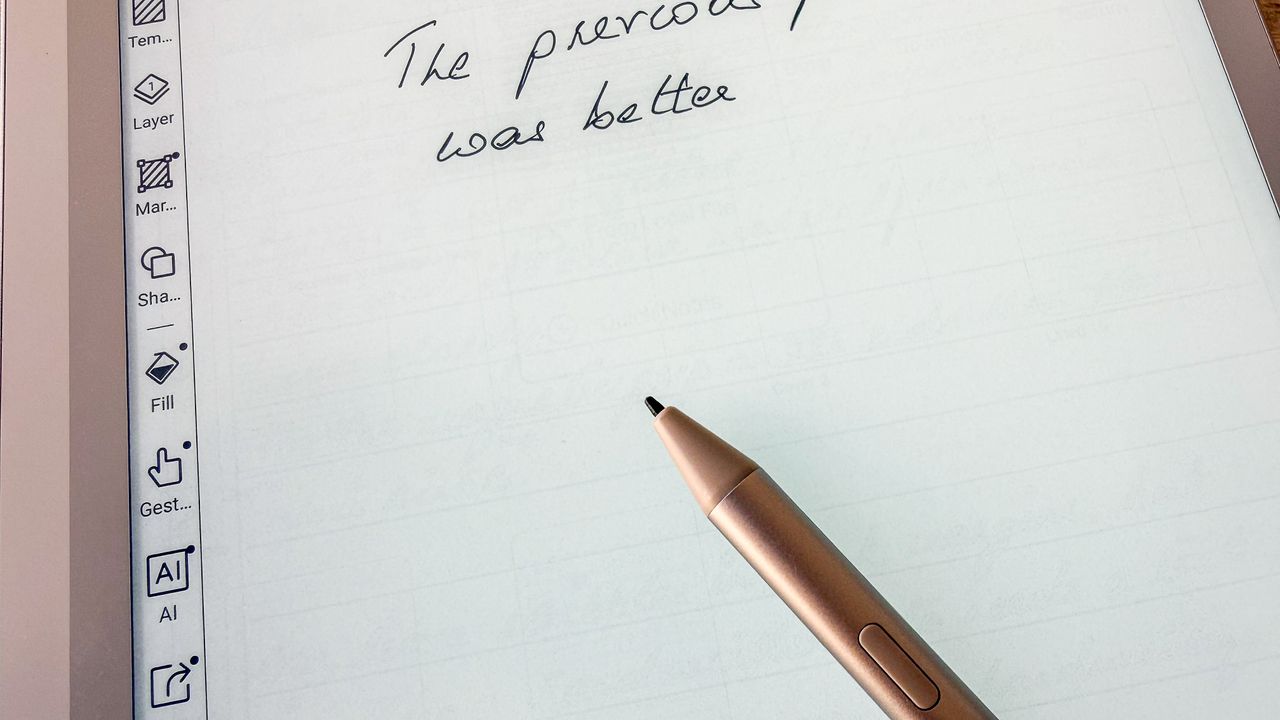 Tem...
1
Layer
Mar...
Sha...
Fill
Gest...
AI
AI
The previous
was better